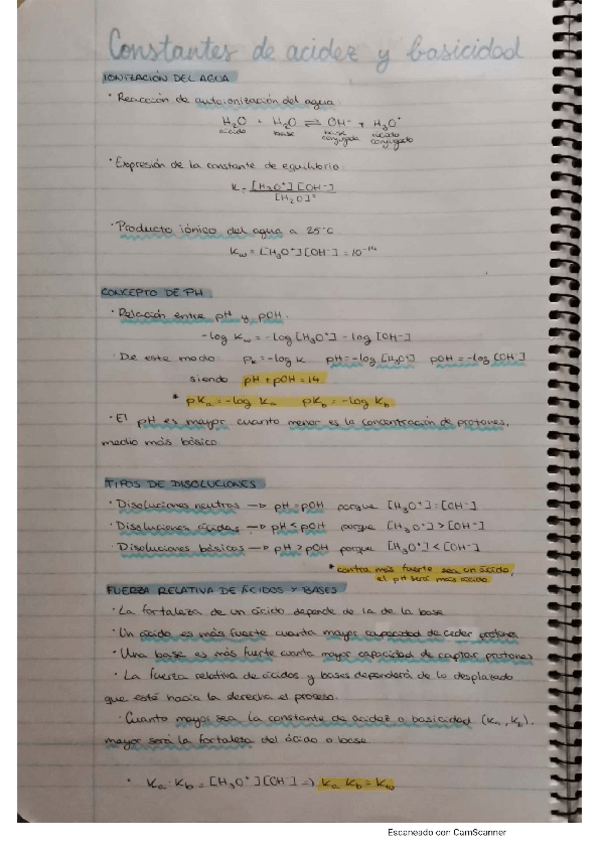 Constantes de acidez y basicidad
IONIZACIÓN DEL AGUA
· Reacción de autoionización del agua:
H₂O + H₂O ⇌ OH⁻ + H₃O⁺
ácido base base conjugada ácido conjugado
· Expresión de la constante de equilibrio:
K = [H₃O⁺][OH⁻] / [H₂O]²
· Producto iónico del agua a 25°C
Kw = [H₃O⁺][OH⁻] = 10⁻¹⁴
CONCEPTO DE PH
· Relación entre pH y pOH:
-log Kw = -log [H₃O⁺] - log [OH⁻]
· De este modo pK = -log K pH = -log [H₃O⁺] pOH = -log [OH⁻]
siendo pH + pOH = 14
* pKa = -log Ka pKb = -log Kb
· El pH es mayor cuanto menor es la concentración de protones,
medio más básico.
TIPOS DE DISOLUCIONES
· Disoluciones neutras → pH = pOH porque [H₃O⁺] = [OH⁻]
· Disoluciones ácidas → pH < pOH porque [H₃O⁺] > [OH⁻]
· Disoluciones básicas → pH > pOH porque [H₃O⁺] < [OH⁻]
* contra más fuerte sea un ácido,
el pH será más ácido.
FUERZA RELATIVA DE ÁCIDOS Y BASES
· La fortaleza de un ácido depende de la de la base
· Un ácido es más fuerte cuanta mayor capacidad de ceder protones
· Una base es más fuerte cuanta mayor capacidad de captar protones
· La fuerza relativa de ácidos y bases dependerá de lo desplazado
que esté hacia la derecha el proceso.
· Cuanto mayor sea la constante de acidez o basicidad (Ka, Kb),
mayor será la fortaleza del ácido o base
· Ka · Kb = [H₃O⁺][OH⁻] ⇒ Ka · Kb = Kw
Escaneado con CamScanner